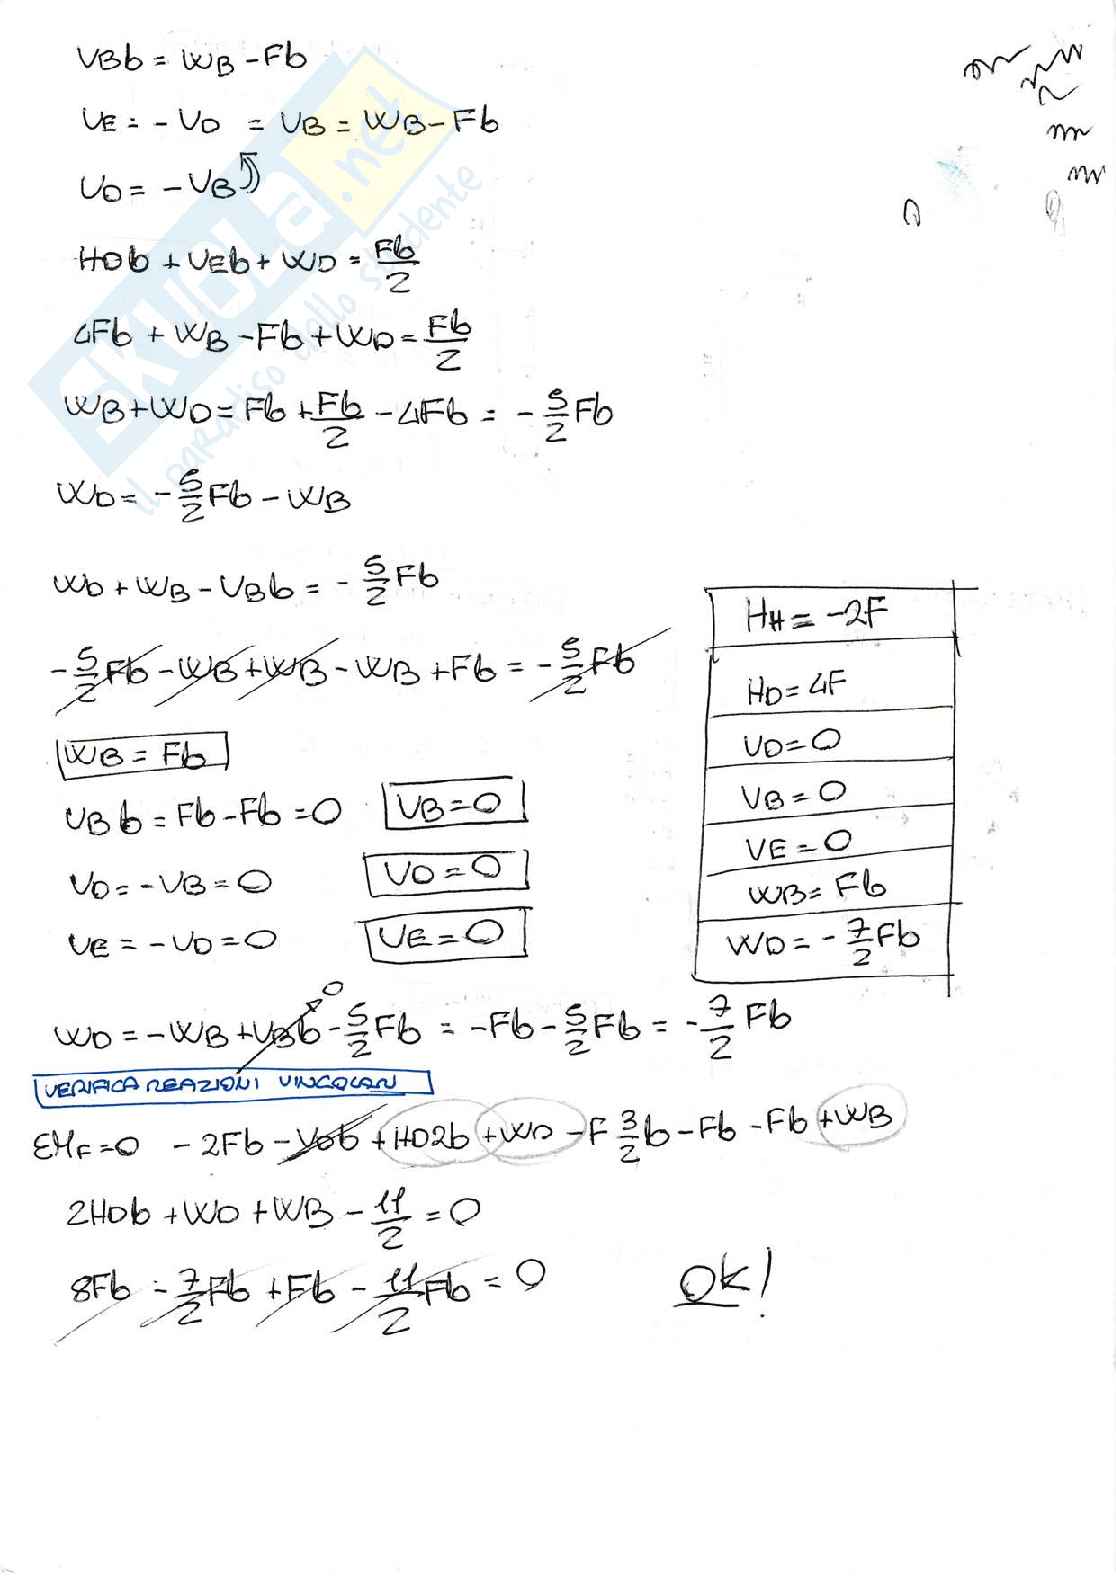 VBb = WB - Fb
VE = - VD = VB = WB - Fb
VD = - VB
HDb + VEb + WD = Fb/2
4Fb + WB - Fb + WD = Fb/2
WB + WD = Fb + Fb/2 - 4Fb = - 5/2 Fb
WD = - 5/2 Fb - WB
WD + WB - VBb = - 5/2 Fb
- 5/2 Fb - WB + WB - WB + Fb = - 5/2 Fb
WB = Fb
VBb = Fb - Fb = 0 VB = 0
VD = - VB = 0 VD = 0
VE = - VD = 0 VE = 0
HH = -2F
HD = 4F
VD = 0
VB = 0
VE = 0
WB = Fb
WD = - 7/2 Fb
WD = - WB + VBb - 5/2 Fb = - Fb - 5/2 Fb = - 7/2 Fb
0
VERIFICA REAZIONI VINCOLARI
ΣMF = 0 - 2Fb - VDb + HD2b + WD - F 3/2 b - Fb - Fb + WB
2HDb + WD + WB - 11/2 = 0
8Fb - 7/2 Fb + Fb - 11/2 Fb = 0 OK!
SKUOLA.net
il paradiso dello studente